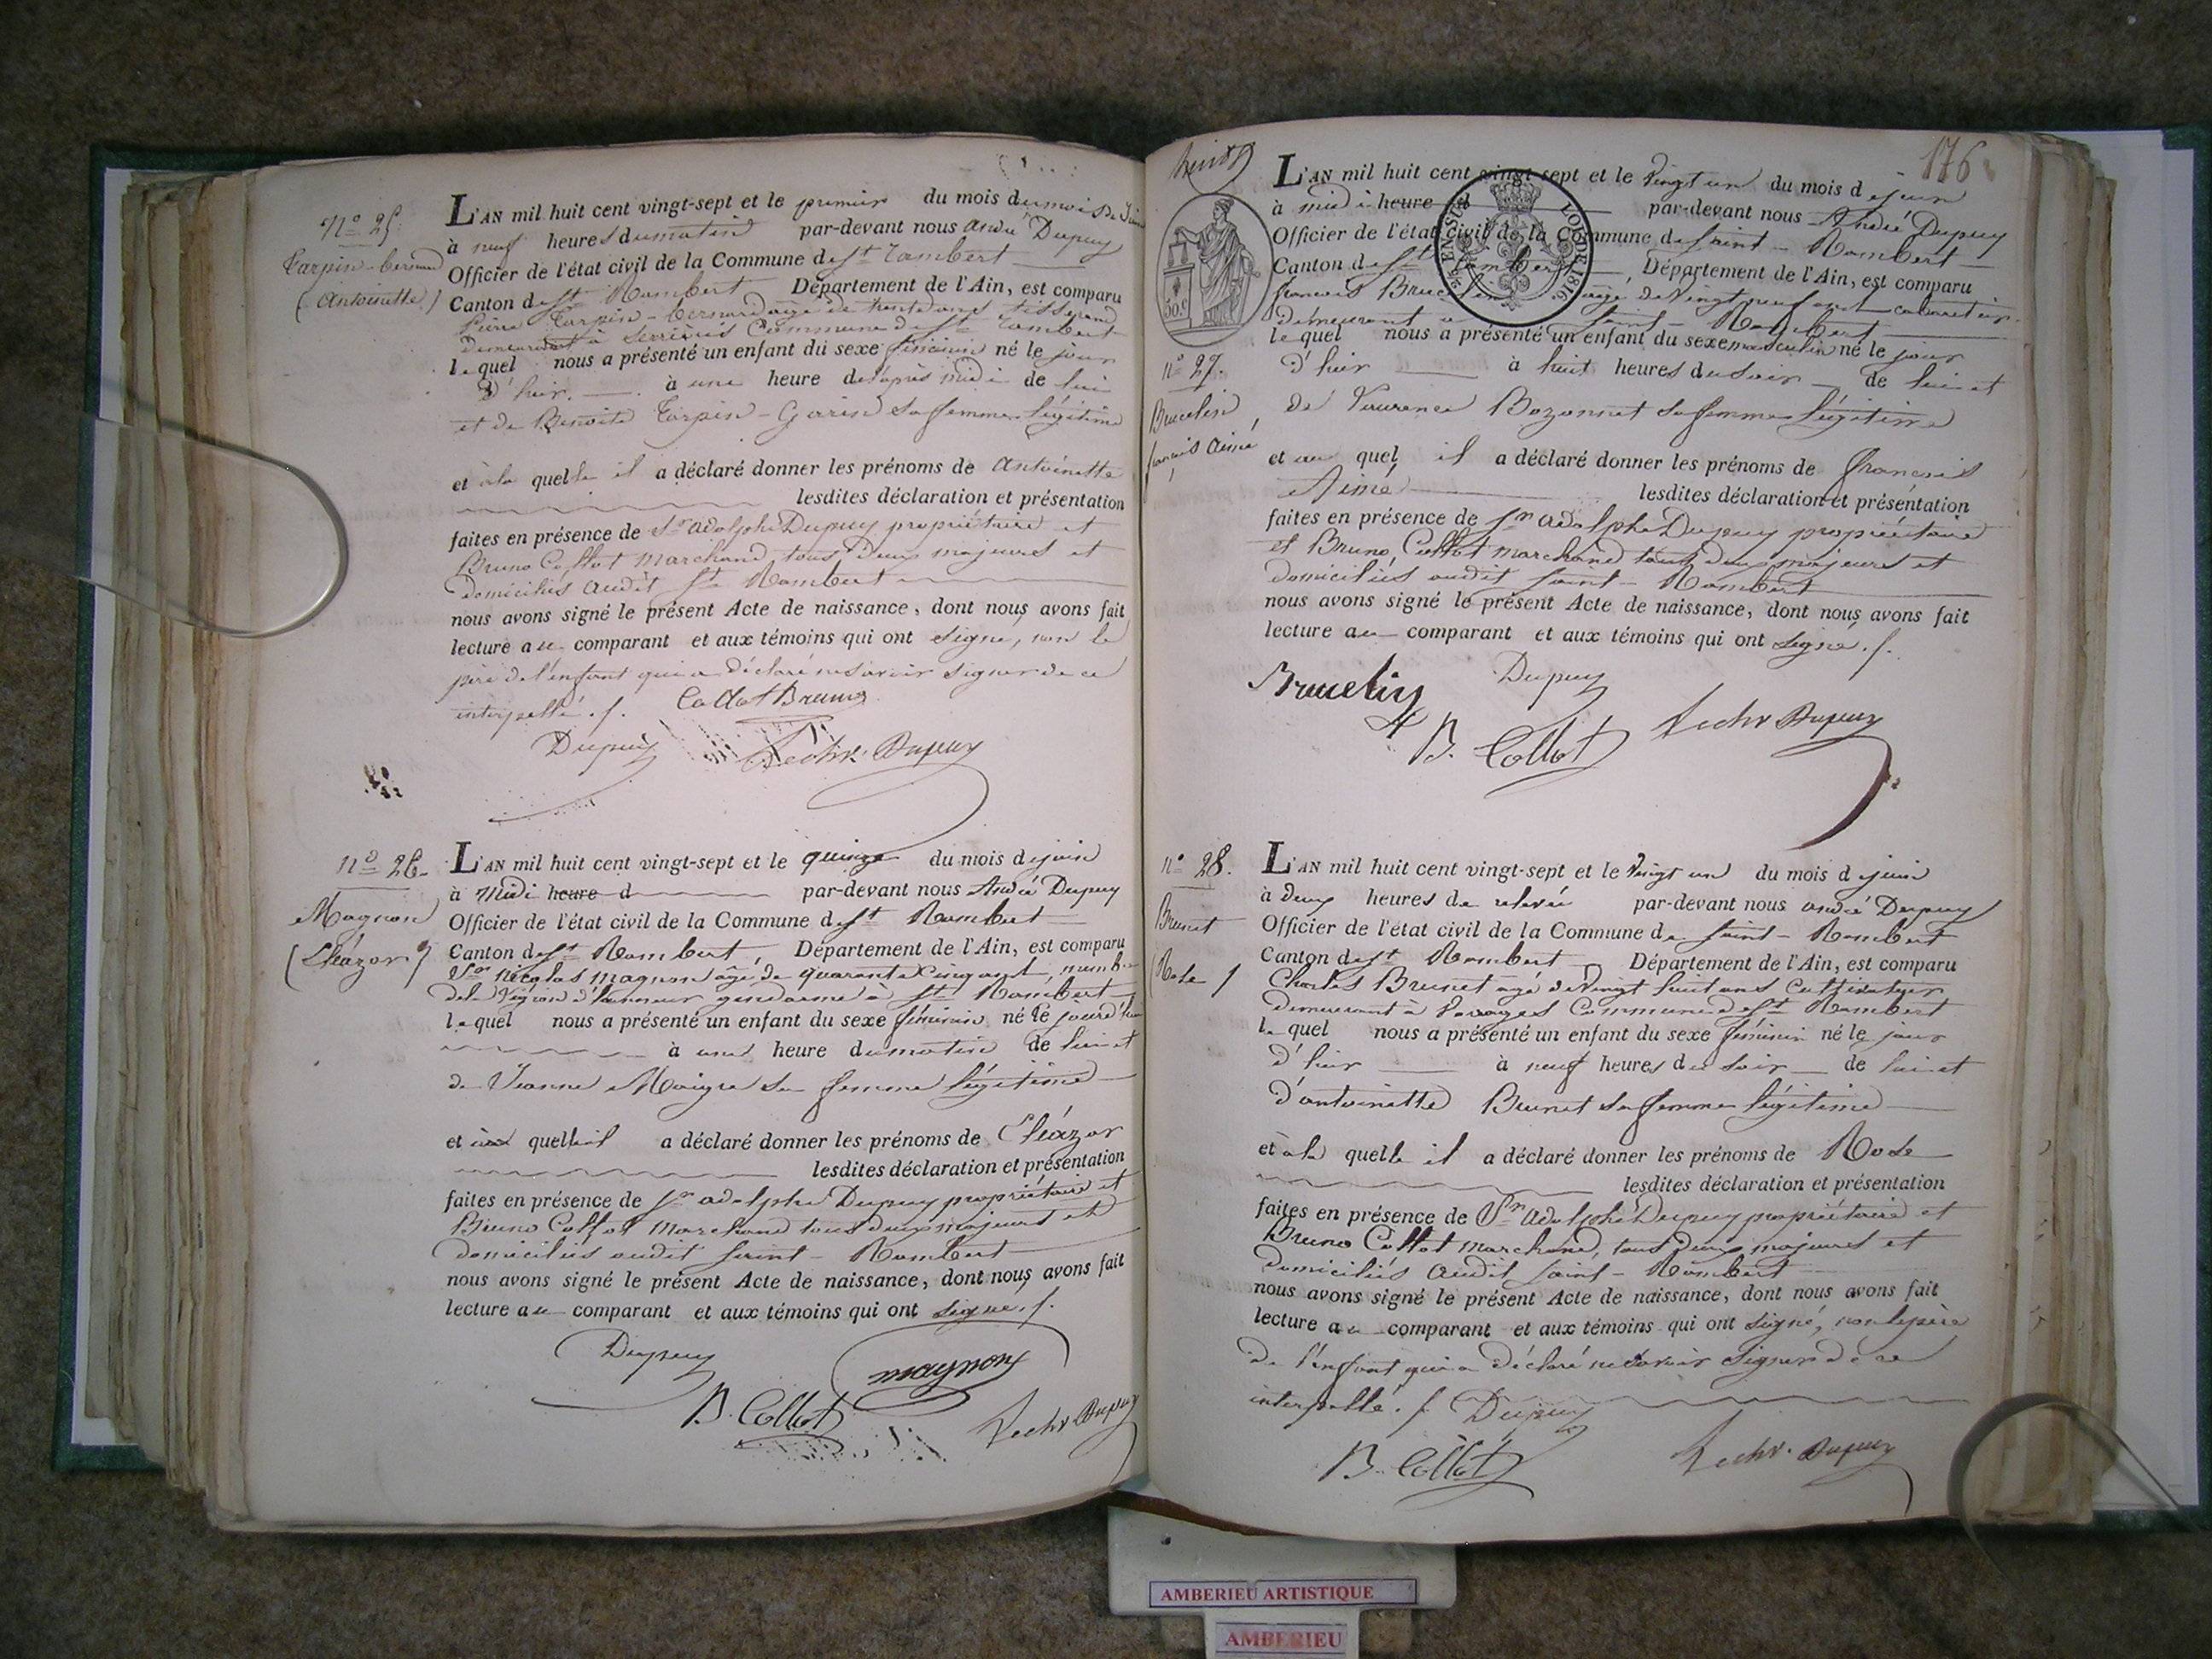 N.o 25.
Tarpin-bernard
(Antoinette)
L'AN mil huit cent vingt-sept et le premier du mois du mois de Juin
à neuf heures du matin par-devant nous André Dupuy
Officier de l'état civil de la Commune de St Rambert
Canton de St Rambert Département de l'Ain, est comparu
Pierre Tarpin-bernard agé de trente ans tisserand
demeurant à Serrières Commune de St Rambert
lequel nous a présenté un enfant du sexe féminin né le jour
d'hier. à une heure de l'après midi de lui
et de Benoite Tarpin-Gorin sa femme légitime
et à la quelle il a déclaré donner les prénoms de Antoinette
lesdites déclaration et présentation
faites en présence de Sr adolphe Dupuy propriétaire et
Bruno Collot marchand tous deux majeurs et
domiciliés audit St Rambert
nous avons signé le présent Acte de naissance, dont nous avons fait
lecture au comparant et aux témoins qui ont signé, non le
père de l'enfant qui a déclaré ne savoir signer de ce
interpellé ./.
Collot Bruno
Dupuy
Dupuy
n.o 26.
Magnon
(Eléazor)
L'AN mil huit cent vingt-sept et le quinze du mois de juin
à midi heure d par-devant nous André Dupuy
Officier de l'état civil de la Commune de St Rambert
Canton de St Rambert, Département de l'Ain, est comparu
Sr nicolas magnon âgé de quarante cinq ans, membre
de la légion d'honneur gendarme à St Rambert
lequel nous a présenté un enfant du sexe féminin né le jourd'hui
à une heure du matin de lui et
de Jeanne Maigre sa femme légitime
et à la quelle il a déclaré donner les prénoms de Eléazor
lesdites déclaration et présentation
faites en présence de Sr adolphe Dupuy propriétaire et
Bruno Collot marchand tous deux majeurs et
domiciliés audit Saint-Rambert
nous avons signé le présent Acte de naissance, dont nous avons fait
lecture au comparant et aux témoins qui ont signé ./.
Dupuy
magnon
B. Collot
Dupuy
176
50.c
LOI DE 1816
n.o 27.
Brucelin
francois Aimé
L'AN mil huit cent vingt-sept et le vingt un du mois de juin
à midi heure d par-devant nous André Dupuy
Officier de l'état civil de la Commune de Saint-Rambert
Canton de St Rambert, Département de l'Ain, est comparu
francois Brucelin agé de vingt neuf ans cabaretier
demeurant à Saint-Rambert
lequel nous a présenté un enfant du sexe masculin né le jour
d'hier à huit heures du soir de lui et
de Bozonnet sa femme légitime
et au quel il a déclaré donner les prénoms de francois
Aimé lesdites déclaration et présentation
faites en présence de Sr adolphe Dupuy propriétaire
et Bruno Collot marchand tous deux majeurs et
domiciliés audit Saint-Rambert
nous avons signé le présent Acte de naissance, dont nous avons fait
lecture au comparant et aux témoins qui ont signé ./.
Brucelin
Dupuy
B. Collot
Dupuy
n.o 28.
Brunet
Rose
L'AN mil huit cent vingt-sept et le vingt un du mois de juin
à deux heures de relevée par-devant nous andré Dupuy
Officier de l'état civil de la Commune de Saint-Rambert
Canton de St Rambert Département de l'Ain, est comparu
Charles Brunet agé de vingt huit ans cultivateur
demeurant à Commune de St Rambert
lequel nous a présenté un enfant du sexe féminin né le jour
d'hier à neuf heures du soir de lui et
d'antoinette Brunet sa femme légitime
et à la quelle il a déclaré donner les prénoms de Rose
lesdites déclaration et présentation
faites en présence de Sr adolphe Dupuy propriétaire et
Bruno Collot marchand, tous deux majeurs et
domiciliés audit Saint-Rambert
nous avons signé le présent Acte de naissance, dont nous avons fait
lecture au comparant et aux témoins qui ont signé, non le père
de l'enfant qui a déclaré ne savoir signer de ce
interpellé ./. Dupuy
B. Collot
Dupuy
AMBERIEU ARTISTIQUE
AMBERIEU